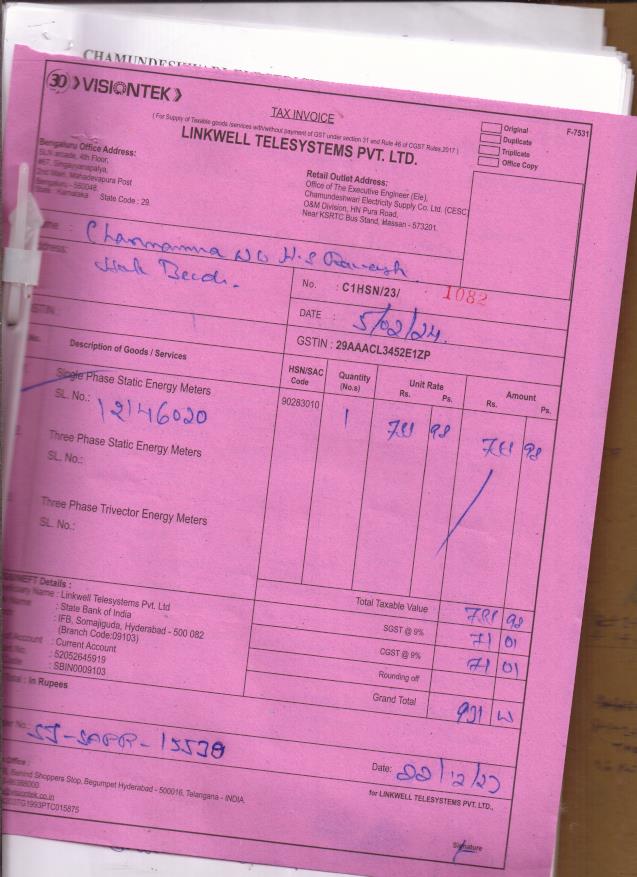 CHAMUNDESHWARI
30 VISIONTEK
TAX INVOICE
( For Supply of Taxable goods /services with/without payment of GST under section 31 and Rule 46 of CGST Rules,2017 )
LINKWELL TELESYSTEMS PVT. LTD.
Original
Duplicate
Triplicate
Office Copy
F-7531
Bengaluru Office Address:
SLN arcade, 4th Floor,
#67, Singayyanapalya,
2nd Main, Mahadevapura Post
Bengaluru - 560048.
State : Karnataka State Code : 29.
Retail Outlet Address:
Office of The Executive Engineer (Ele),
Chamundeshwari Electricity Supply Co. Ltd. (CESC)
O&M Division, HN Pura Road,
Near KSRTC Bus Stand, Hassan - 573201.
: Channamma W/o H.S
dress:
No. : C1HSN/23/ 1082
DATE : 5/02/24
GSTIN : 29AAACL3452E1ZP
Description of Goods / Services
HSN/SAC Code
Quantity (No.s)
Unit Rate
Rs. Ps.
Amount
Rs. Ps.
Single Phase Static Energy Meters
SL. No.: 12146020
90283010 1
98
98
Three Phase Static Energy Meters
SL. No.:
Three Phase Trivector Energy Meters
SL. No.:
/NEFT Details :
Name : Linkwell Telesystems Pvt. Ltd
Name : State Bank of India
: IFB, Somajiguda, Hyderabad - 500 082
(Branch Code:09103)
Account : Current Account
No. : 52052645919
Code : SBIN0009103
Total Taxable Value 98
SGST @ 9% 71 01
CGST @ 9% 71 01
Rounding off
Grand Total 931
Total : In Rupees
No.: 15538
Date: 22/12/23
Office :
Behind Shoppers Stop, Begumpet Hyderabad - 500016, Telangana - INDIA.
visiontek.co.in
TG1993PTC015875
for LINKWELL TELESYSTEMS PVT. LTD.,
Signature